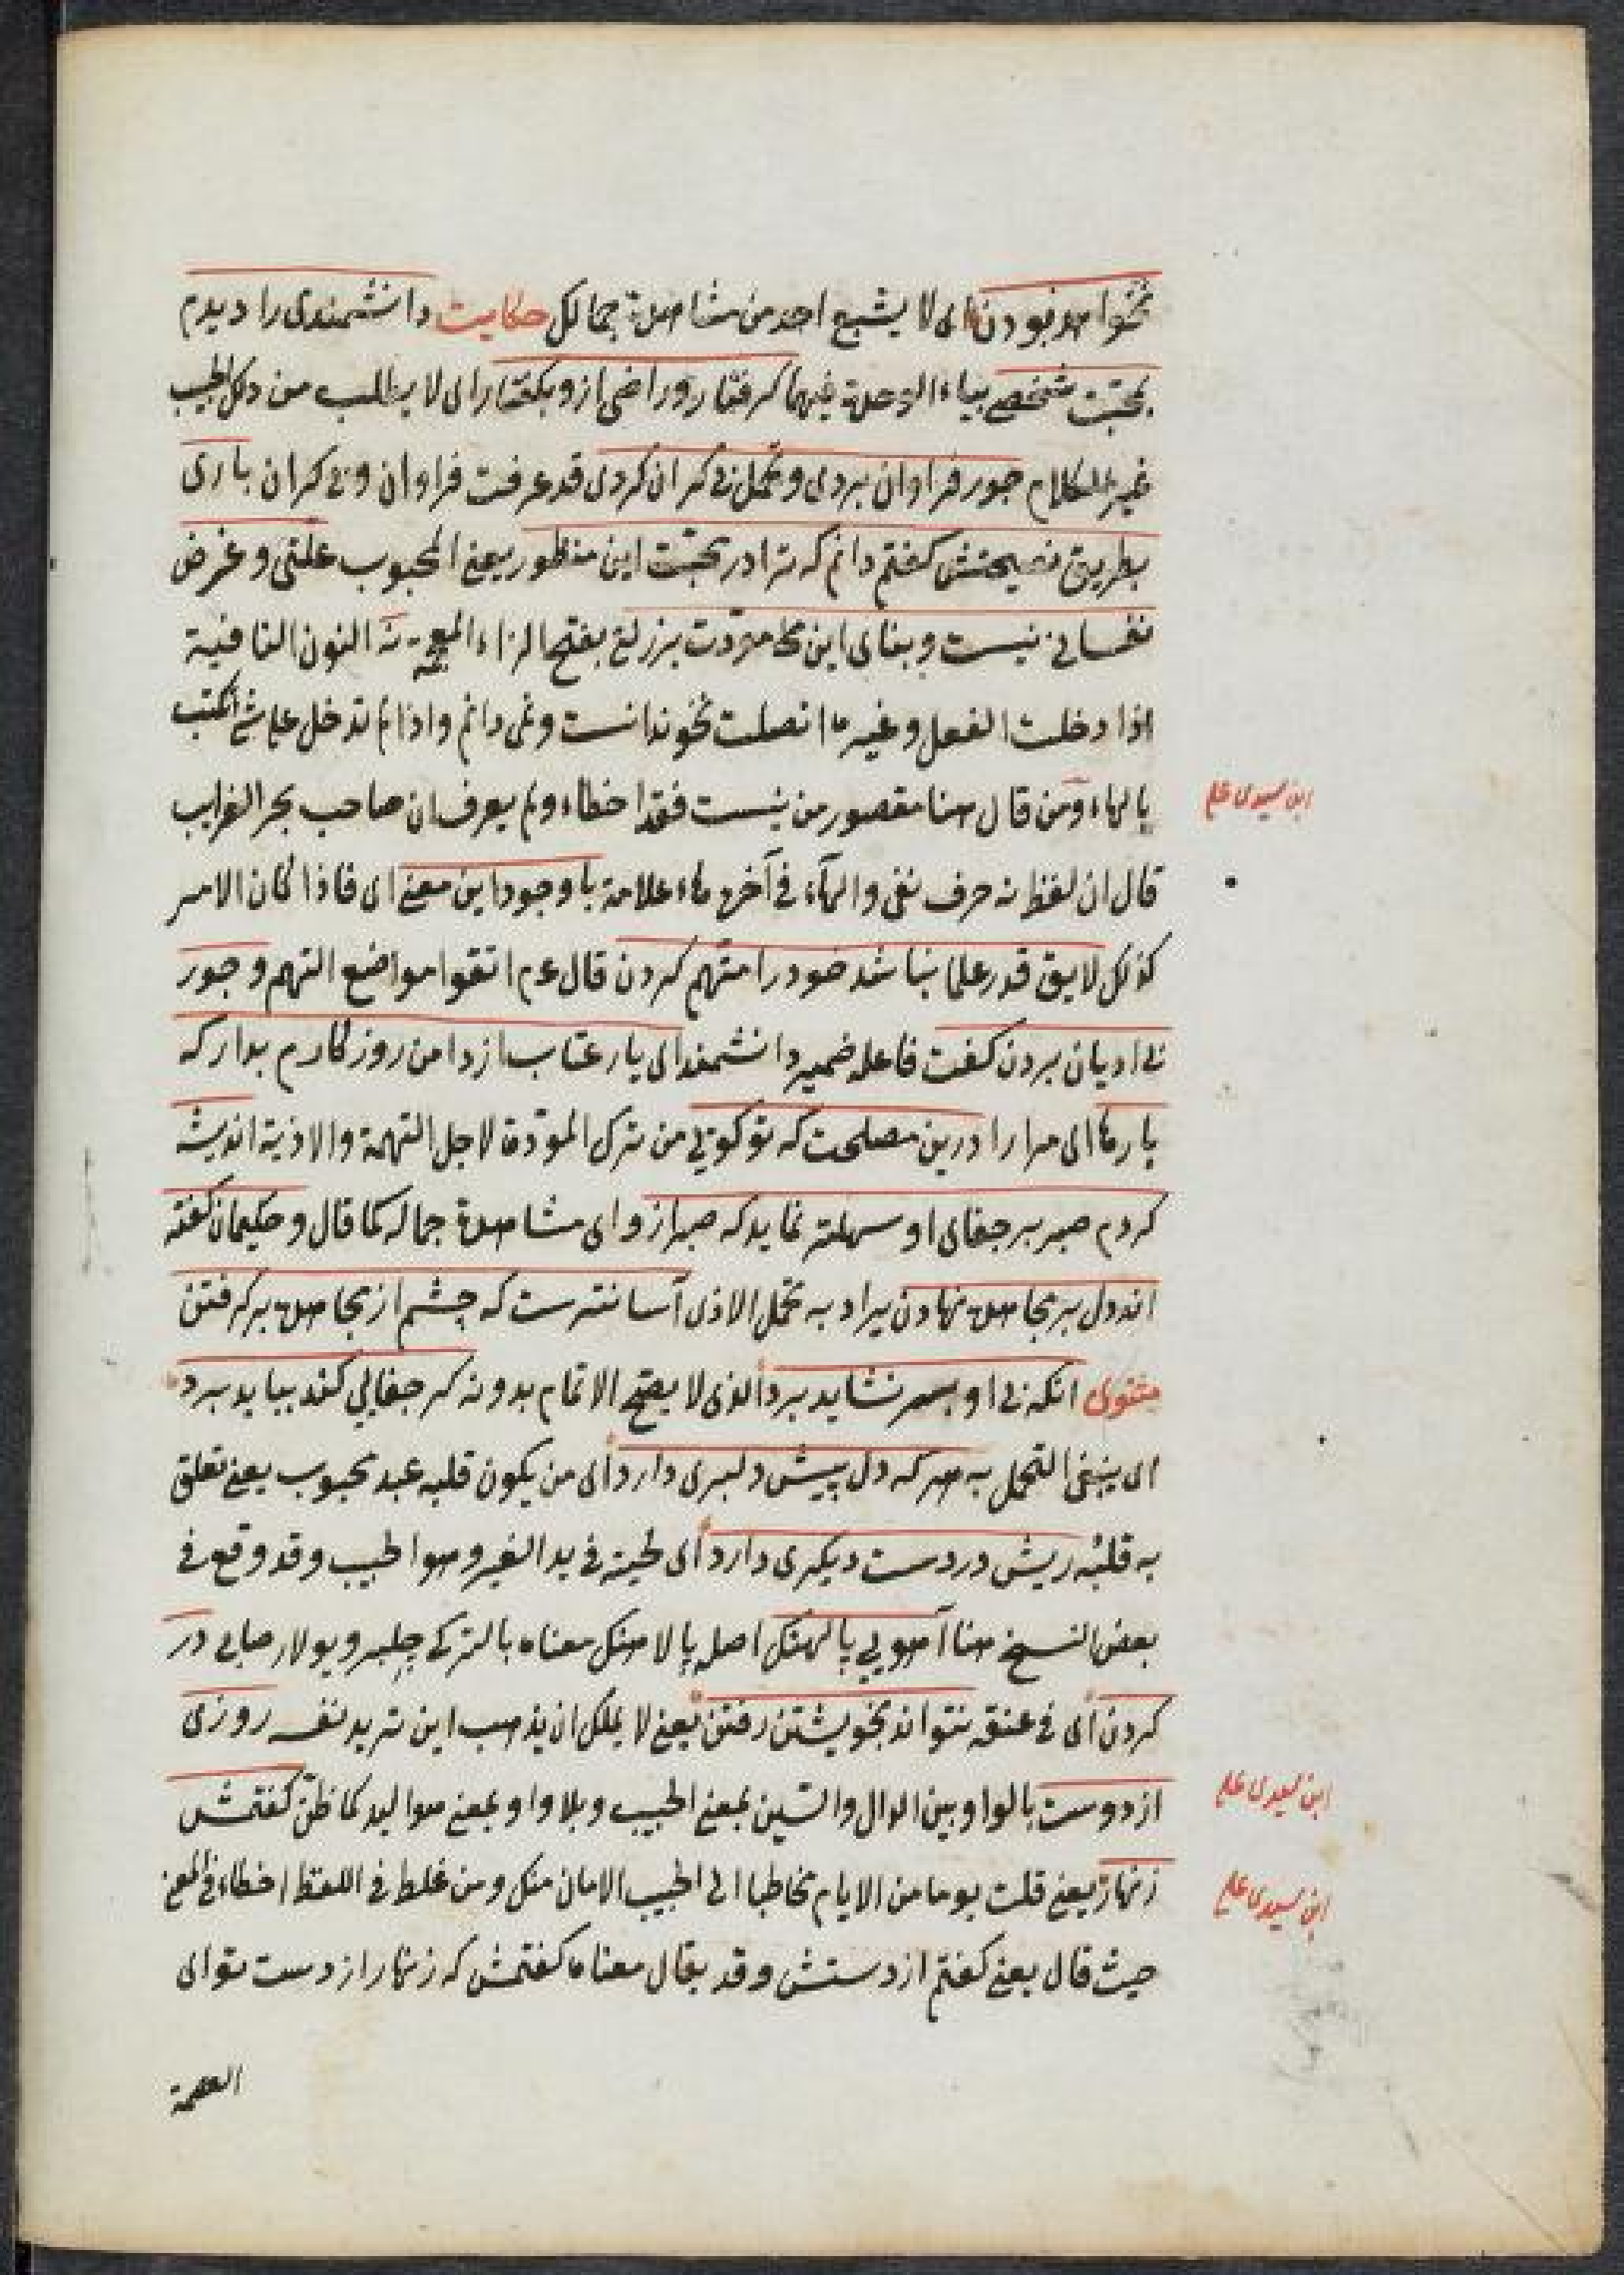 نخواهد بودن ای لا یشبع احد من مشاهدة جمالک حکایت دانشمندی را دیدم
بمحبت شخصی بیاء الوحدة فیهما گرفتار و راضی ازو بگفتار ای لا یطلب من ذلک الحبیب
غیر الکلام جور فراوان بردی و تحمل بی کران کردی قد عرفت فراوان و بی کران باری
بطریق نصیحتش گفتم دانم که ترا در محبت این منظور یعنی المحبوب علتی و غرض
نفسانی نیست و بنای این محل مودت بر زلة بفتح الزاء المعجمة نه النون النافیة
اذا دخلت الفعل و غیر ما اتصلت نخو ندانست و نمی دانم و اذا لم تدخل علی شئ تکتب
بالهاء و من قال هنا مقصور من نیست فقد اخطاء و لم یعرف ان صاحب بحر الغرایب
ابن سیدی علی
قال ان لفظ نه حرف نفی و الهاء فی آخره هاء علامة با وجود این معنی ای فاذا کان الامر
کذلک لایق قدر علما نباشد خود را متهم کردن قال عم اتقوا مواضع التهم و جور
بی ادبان بردن گفت فاعله ضمیر دانشمند ای یار عتاب از دامن روزگارم بدار که
بارها ای مرارا درین مصلحت که تو گویی من ترک المودة لاجل التهمة و الاذیة اندیشه
کردم صبر بر جفای او سهلتر نماید که صبر ازو ای مشاهدة جماله کما قال و حکیمان گفته
اند دل بر مجاهده نهادن یراد به تحمل الاذی آسانترست که چشم از مجاهده برگرفتن
مثنوی آنکه بی او بسر نشاید برد الذی لا یصح الاتمام بدونه گر جفایی کند بباید برد
ای ینبغی التحمل به هر که دل پیش دلبری دارد ای من یکون قلبه عبد محبوب یعنی تعلق
به قلبه ریش در دست دیگری دارد ای لحیته فی ید الغیر و هو الحبیب و قد وقع فی
بعض النسخ هنا آهویی پالهنگ اصله پالاهنگ معناه بالترکی چلبر و یولار صاپی در
گردن ای فی عنقه نتواند بخویشتن رفتن یعنی لا یملک ان یذهب این ترید نفسه روزی
از دوست بالواو بین الدال و السین بمعنی الحبیب و بلا واو بمعنی هو الید کما ظن گفتمش
ابن سیدی علی
زنهار یعنی قلت یوما من الایام مخاطبا الی الحبیب الامان منک و من غلط فی اللفظ اخطاء فی المعنی
ابن سیدی علی
حیث قال یعنی گفتم از دستش و قد یقال معناه گفتمش که زنهار از دست تو ای
العصمة